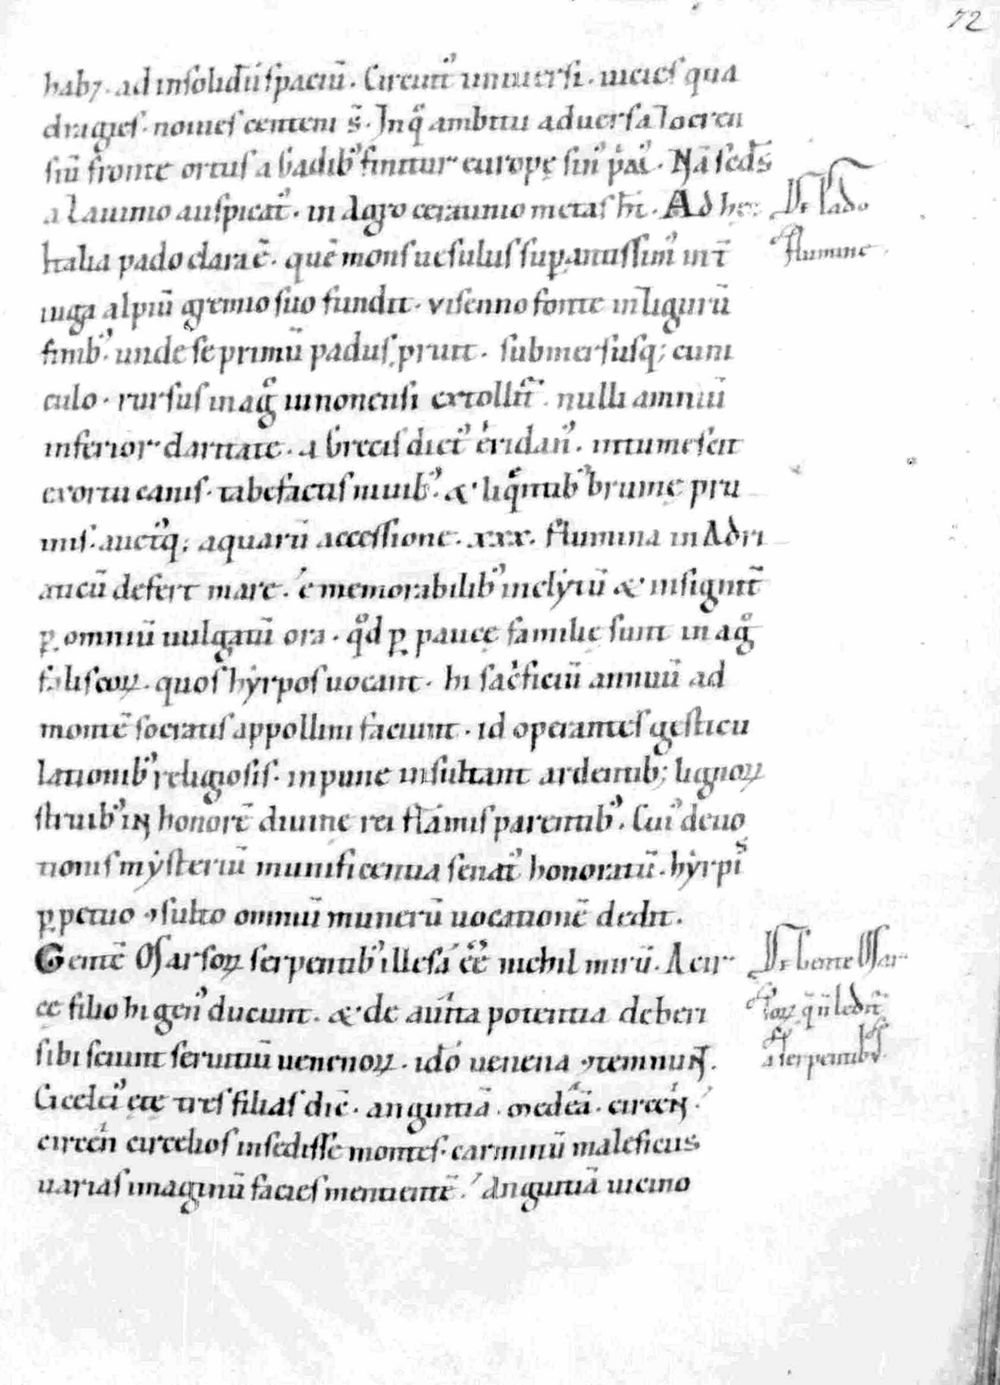 72
habꝫ · ad insolidū spaciū · Circuit᷒ uniuersi · uicies qua
dragies · nouies centeni s̄ · In q̊ ambitu aduersa locren
siū fronte ortus a Gadib᷒ finitur europę sin᷒ p̊m᷒ · Nā sed̄s
a Lauinio auspicat᷒ · in Agro ceraunio metas ht̄ · Ad hec
Italia pado clara ē · quē mons uesulus supantissim᷒ int̄
iuga alpiū gremio suo fundit · visenno fonte inligurū
finib᷒ · unde se primū padus ꝓruit · submersusq; cuni
culo · rursus in ag̊ uinonensi extollit᷒ · nulli amniū
inferior claritate · a Grecis dict᷒ eridan᷒ · intumescit
exortu canis · tabefactis niuib᷒ · & liq̃ntib᷒ brumę pru
inis · auct᷒q; aquarū accessione · xxx · flumina in Adri
aticū defert mare · é memorabilib᷒ inclẏtū & insignit̄
ꝑ omniū uulgatū ora · q̊d ꝑ paucę familię sunt in ag̊
faliscoꝝ · quos hẏrpos uocant · hi sacͥficiū annuū ad
montē socratis appollini faciunt · id operantes gesticu
lationib᷒ religiosis · inpune insultant ardentib; lignoꝝ
struib᷒ iɴ honorē diuinę rei flāmis parentib᷒ · Cui᷒ deuo
tionis mẏsteriū munificentia senat᷒ honoratū · hẏrpis
ꝑpetuo ↄsulto omniū munerū uocationē dedit ·
Gentē Marsoꝝ serpentib᷒ illesā ee᷒ nichil mirū · A cir
ce filio hi gen᷒ ducunt · & de auita potentia deberi
sibi sciunt seruitiū uenenoꝝ · idō uenena ↄtemnunt ·
C · celci᷒ ęetę tres filias dic̄ · angitiā · medeā · circen ·
circen circelios insedisse montes · carminū maleficiis
uarias imaginū facies mentientē · Angitiā uicino
De Pado
flumine ·
De Gente Mar
soꝝ q̄ n̄ ledit᷒
a serpentib᷒